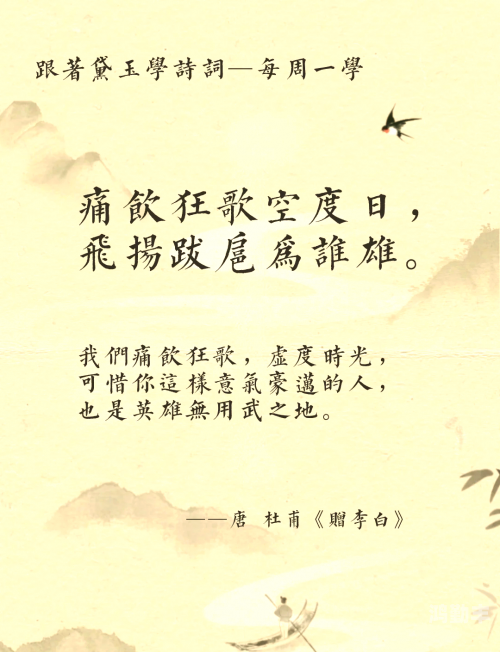 跟著黛玉學詩詞—每周一學
痛飲狂歌空度日，
飛揚跋扈為誰雄。
我們痛飲狂歌，虛度時光，
可惜你這樣意氣豪邁的人，
也是英雄無用武之地。
——唐 杜甫《贈李白》